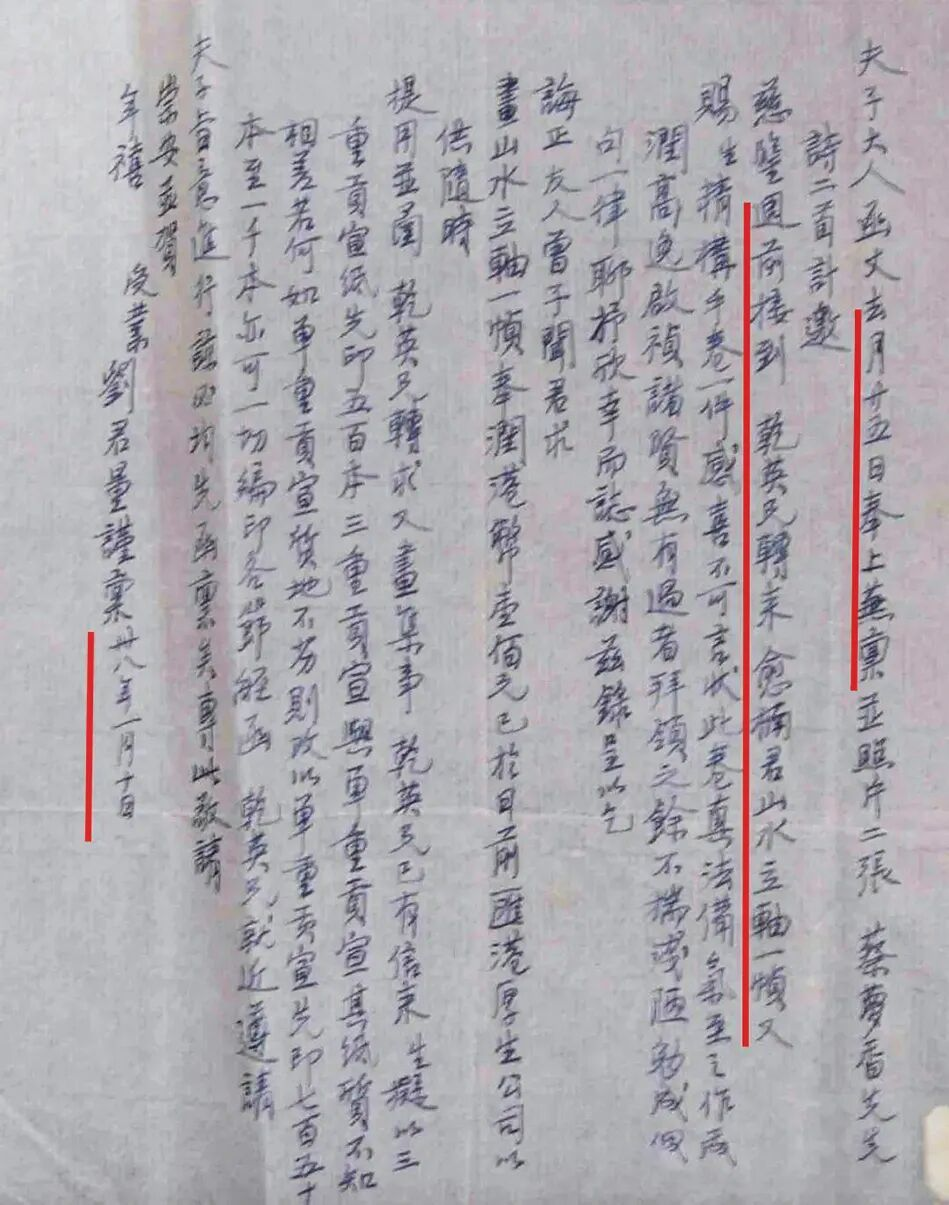 夫子大人函丈去月廿五日奉上蕪稟並照片二張 蔡夢香先生
詩二首計邀
慈鑒週前接到 乾英兄轉來 愈楠君山水立軸一幀又
賜生精構手卷一件感喜不可言狀此卷真法備氣至之作成
潤高逸啟禎諸賢無有過者拜領之餘不揣淺陋勉成四
句一律聊抒欣幸而誌感謝茲錄呈以乞
誨正友人曾子聞君求
畫山水立軸一幀奉潤港幣壹佰元已於日前匯港厚生公司以
供隨時
提用並函 乾英兄轉求又畫集事 乾英兄已有信來 生擬以三
重貢宣紙先印五百本三重貢宣與單重貢宣其紙質不知
相差若何如單重貢宣質地不劣則改以單重貢宣先印七百五十
本至一千本亦可一切編印各節經函 乾英兄就近遵請
夫子旨意進行 均先函稟矣專此敬請
崇安並賀
年禧 受業劉君量謹稟廿八年一月十日